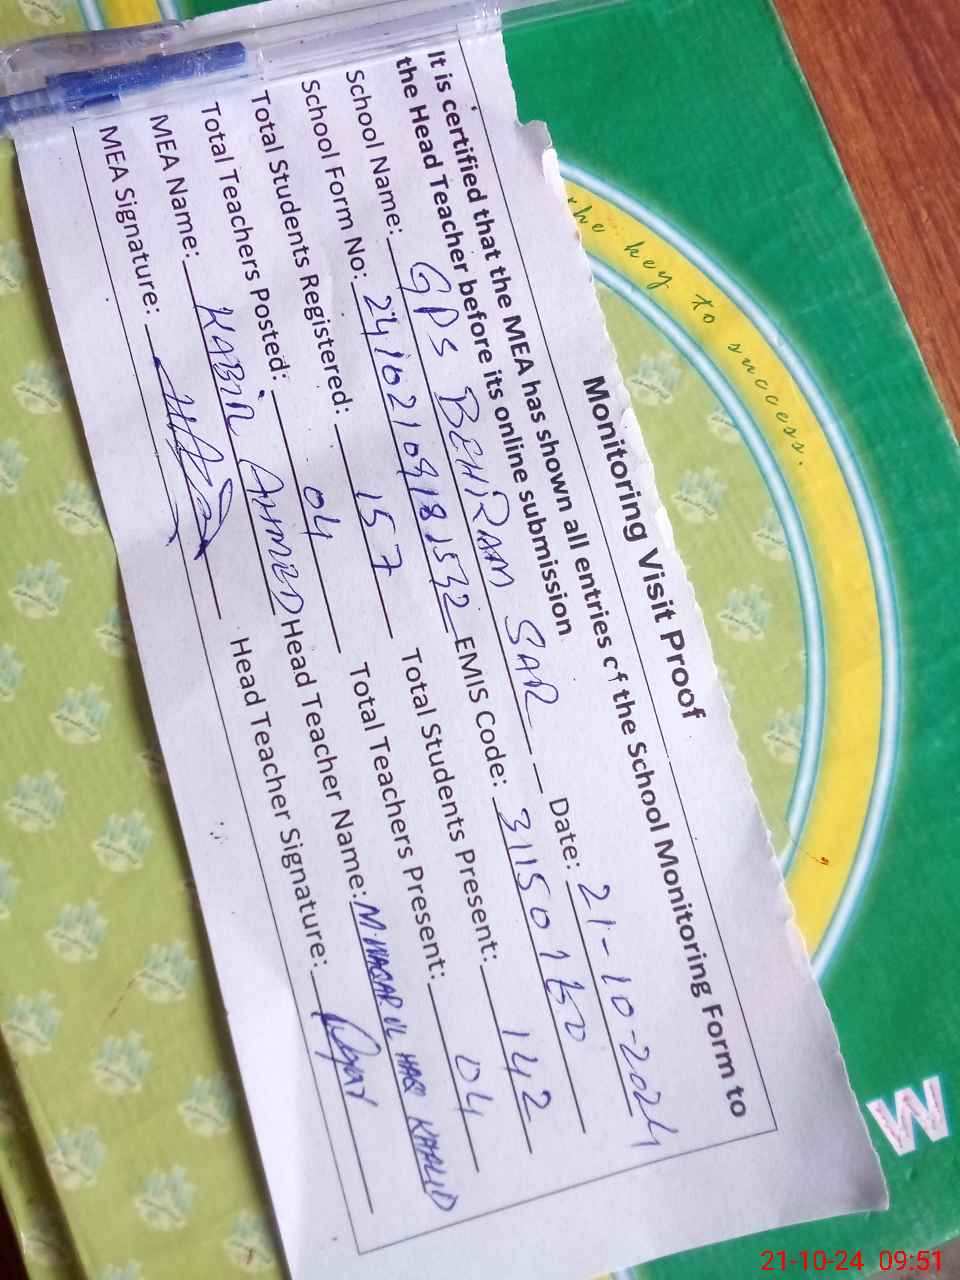 the key to success.
Monitoring Visit Proof
It is certified that the MEA has shown all entries of the School Monitoring Form to
the Head Teacher before its online submission
School Name: GPS BEHRAM SAR Date: 21-10-2024
School Form No: 24102109181532 EMIS Code: 31150
Total Students Registered: 157 Total Students Present: 142
Total Teachers Posted: 04 Total Teachers Present: 04
MEA Name: KABIR AHMED Head Teacher Name: M. WAQAR UL HAQ KHALID
MEA Signature: Head Teacher Signature:
W
21-10-24 09:51